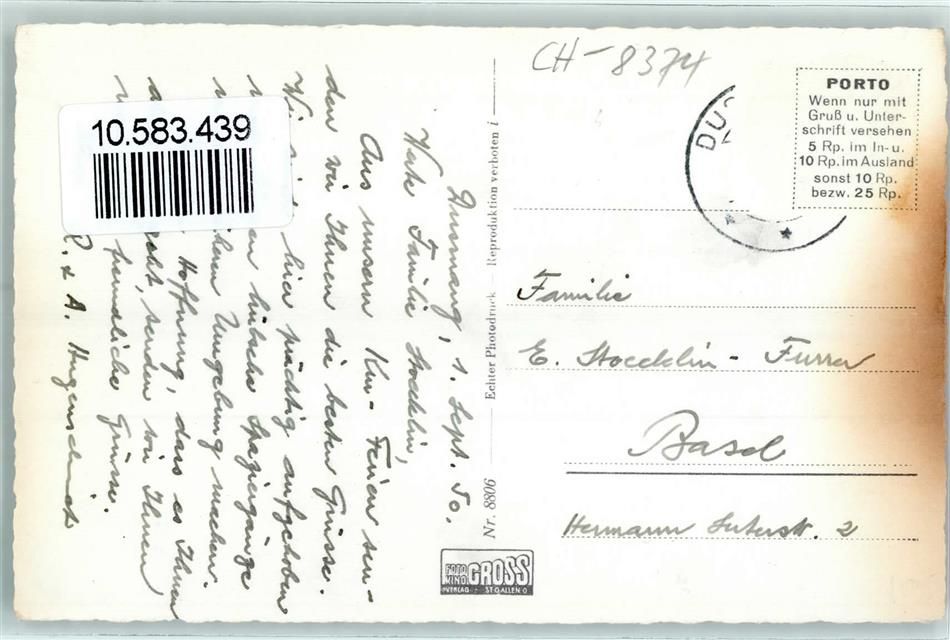 CH-8374
PORTO
Wenn nur mit
Gruß u. Unter-
schrift versehen
5 Rp. im In- u.
10 Rp. im Ausland
sonst 10 Rp.
bezw. 25 Rp.
DUS
10.583.439
Dussnang, 1. Sept. 50.
Werte Familie Stoecklin,
Aus unsern Kur-Ferien sen-
den wir Ihnen die besten Grüsse.
Wir sind hier prächtig aufgehoben
hübsche Spaziergänge
Umgebung machen.
Hoffnung, dass es Ihnen
geht, senden wir Ihnen
freundliche Grüsse.
& A. Hugenschmidt
Echter Photodruck – Reproduktion verboten
Nr. 8806
Familie
E. Stoecklin-Furrer
Basel
Hermann Suterstr. 2
FOTO
KINO
GROSS
VERLAG - ST GALLEN O